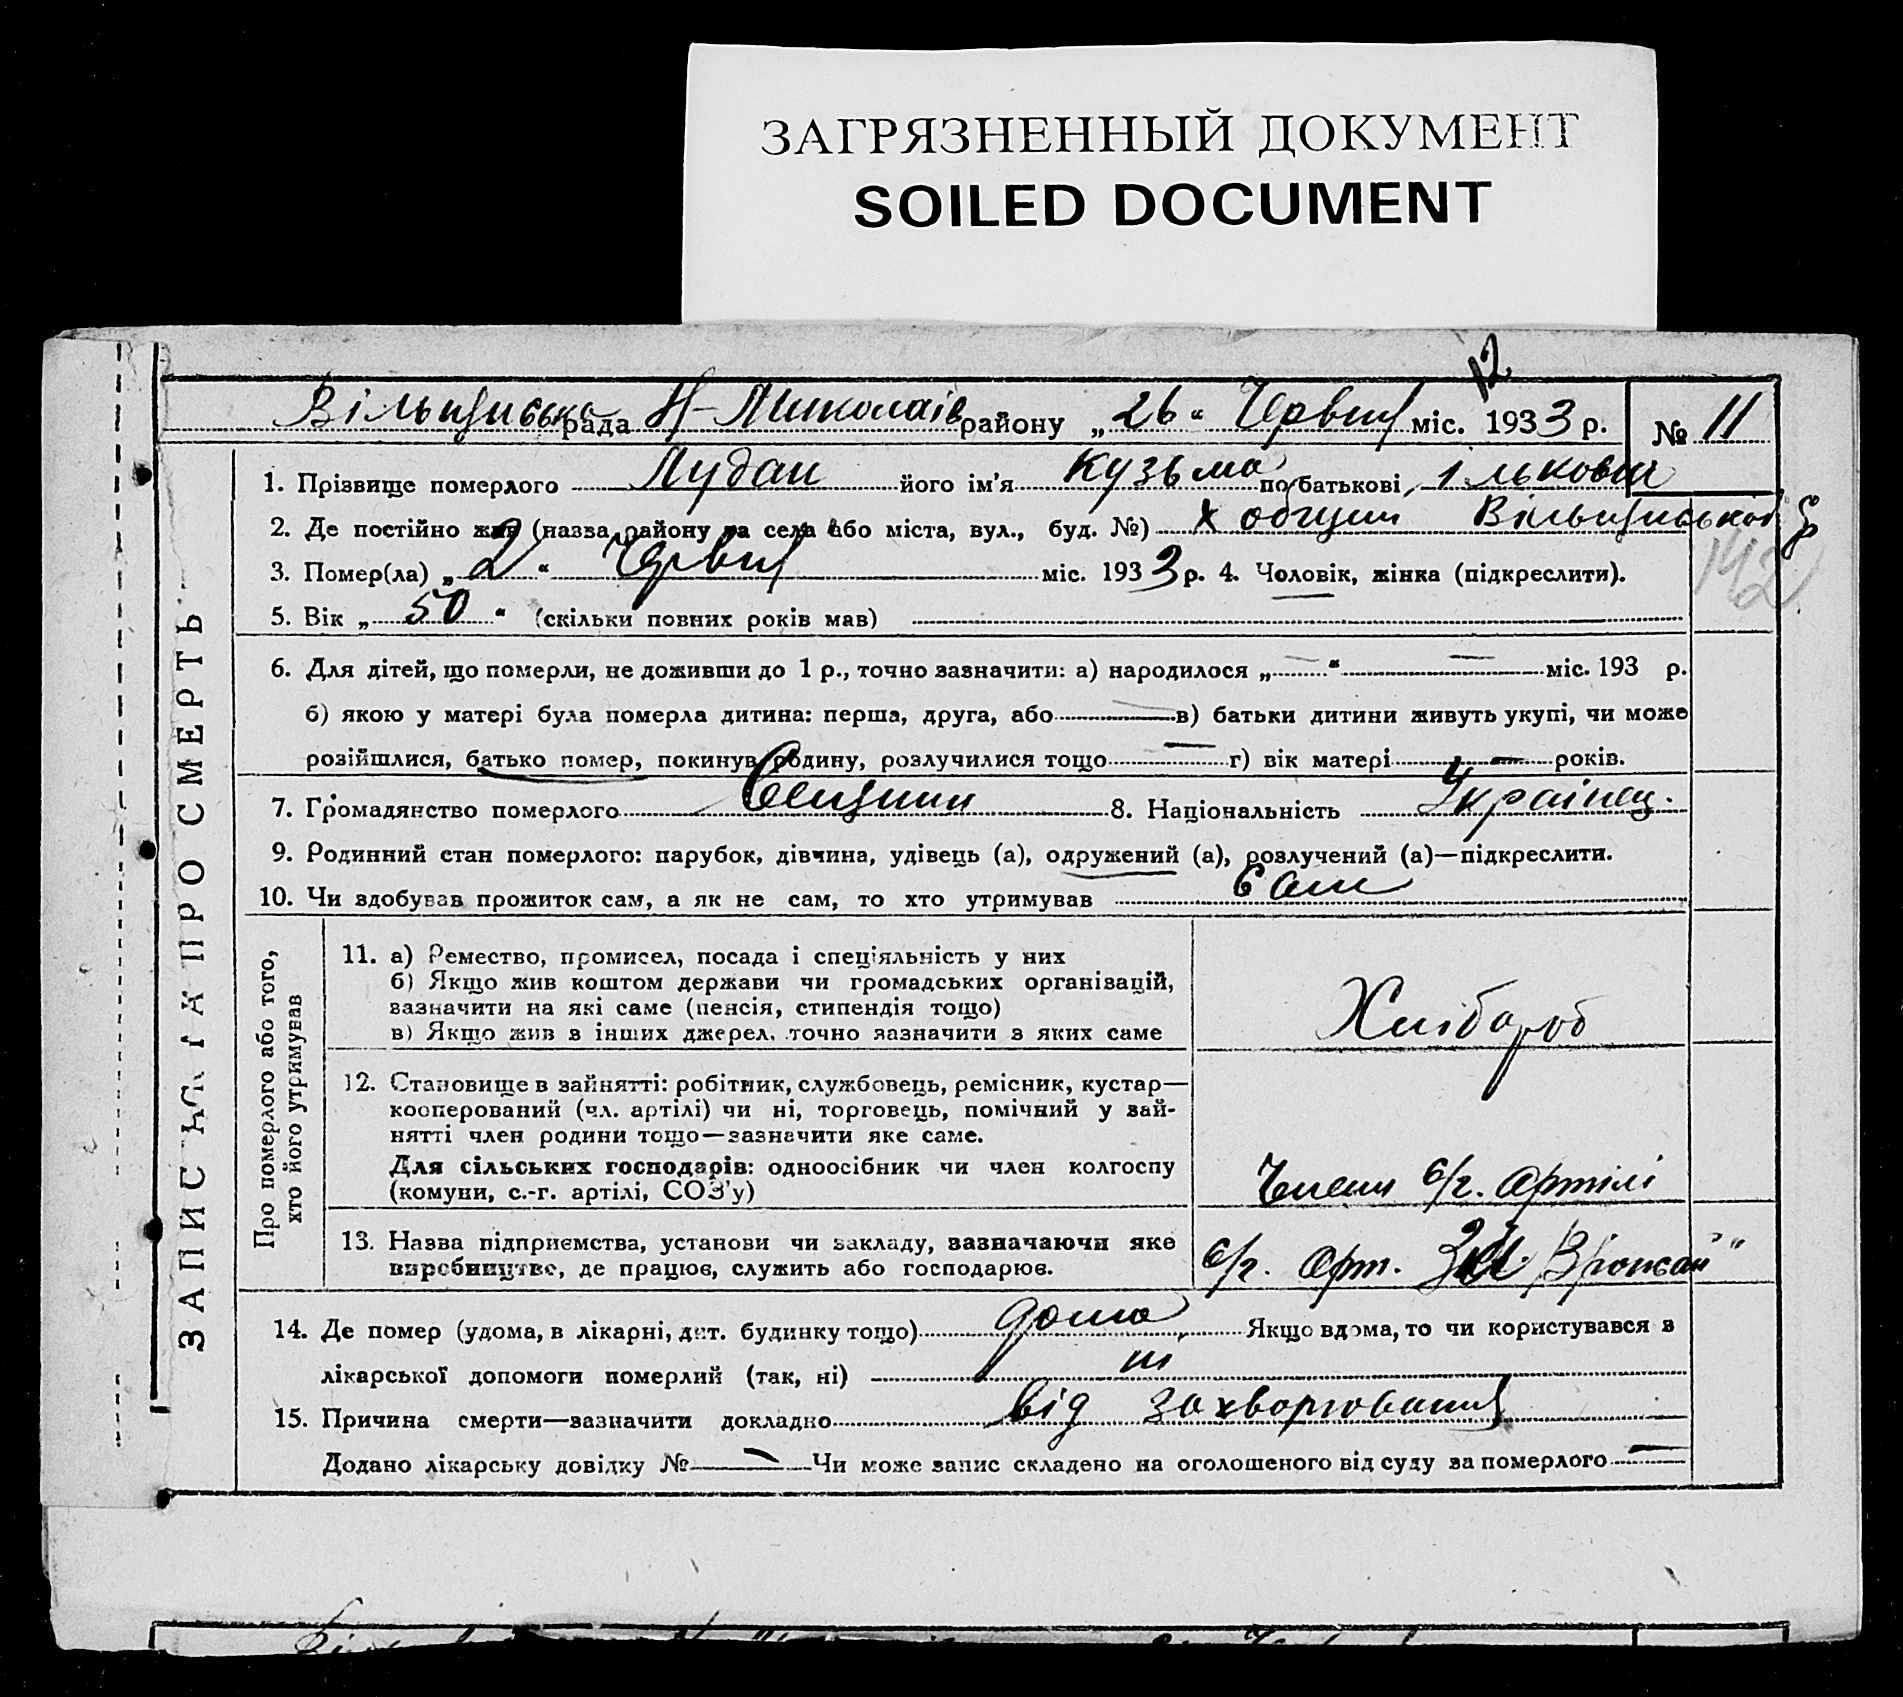 ЗАГРЯЗНЕННЫЙ ДОКУМЕНТ
SOILED DOCUMENT
12
Вільщиська рада Н-Миколаїв району „26“ Червня міс. 1933 р. № 11
ЗАПИСЬКА ПРО СМЕРТЬ
1. Прізвище померлого Лудан його ім'я Кузьма по батькові Ількович
2. Де постійно жив (назва району та села або міста, вул., буд. №) Вільщиської
3. Помер(ла) „2“ Червня міс. 1933 р. 4. Чоловік, жінка (підкреслити).
142
5. Вік „50“ (скільки повних років мав)
6. Для дітей, що померли, не доживши до 1 р., точно зазначити: а) народилося „—“ — міс. 193 р.
б) якою у матері була померла дитина: перша, друга, або — в) батьки дитини живуть укупі, чи може
розійшлися, батько помер, покинув родину, розлучилися тощо — г) вік матері — років.
7. Громадянство померлого 8. Національність Українец.
9. Родинний стан померлого: парубок, дівчина, удівець (а), одружений (а), розлучений (а)—підкреслити.
10. Чи здобував прожиток сам, а як не сам, то хто утримував Сам
Про померлого або того,
хто його утримував
11. а) Ремество, промисел, посада і спеціяльність у них
б) Якщо жив коштом держави чи громадських організацій,
зазначити на які саме (пенсія, стипендія тощо)
в) Якщо жив з інших джерел, точно зазначити з яких саме
Хлібороб
12. Становище в зайнятті: робітник, службовець, ремісник, кустар—
кооперований (чл. артілі) чи ні, торговець, помічний у зай-
нятті член родини тощо—зазначити яке саме.
Для сільських господарів: одноосібник чи член колгоспу
(комуни, с.-г. артілі, СОЗ'у)
Член с/г. артілі
13. Назва підприємства, установи чи закладу, зазначаючи яке
виробництво, де працює, служить або господарює.
с/г. арт. За Врожай"
14. Де помер (удома, в лікарні, дит. будинку тощо) дома Якщо вдома, то чи користувався з
лікарської допомоги померлий (так, ні) ні
15. Причина смерти—зазначити докладно від захворювання
Додано лікарську довідку № — Чи може запис складено на оголошеного від суду за померлого —